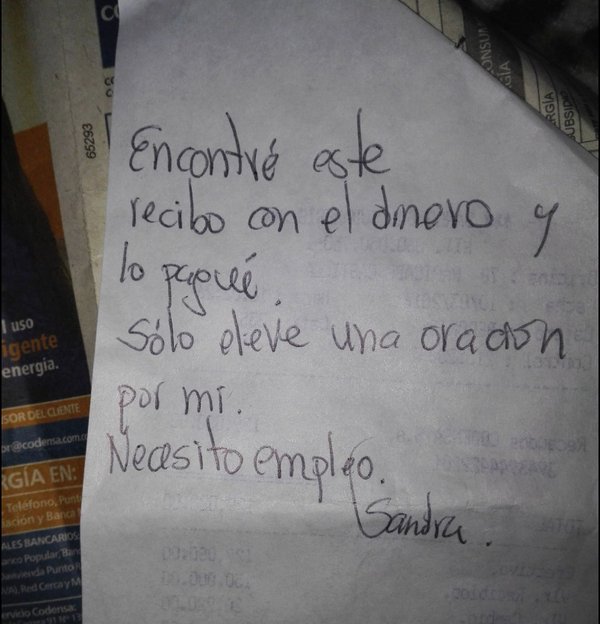 Encontré este
recibo con el dinero y
lo pagué.
Sólo eleve una oración
por mí.
Necesito empleo.
Sandra.
65293
l uso
igente
energía.
SOR DEL CLIENTE
or@codensa.com.co
RGÍA EN:
Teléfono, Punt
iación y Banca
ALES BANCARIOS:
anco Popular, Ban
Red Cerca y M
ervicio Codensa:
CONSUM
GÍA
ERGÍA
SUBSIDI